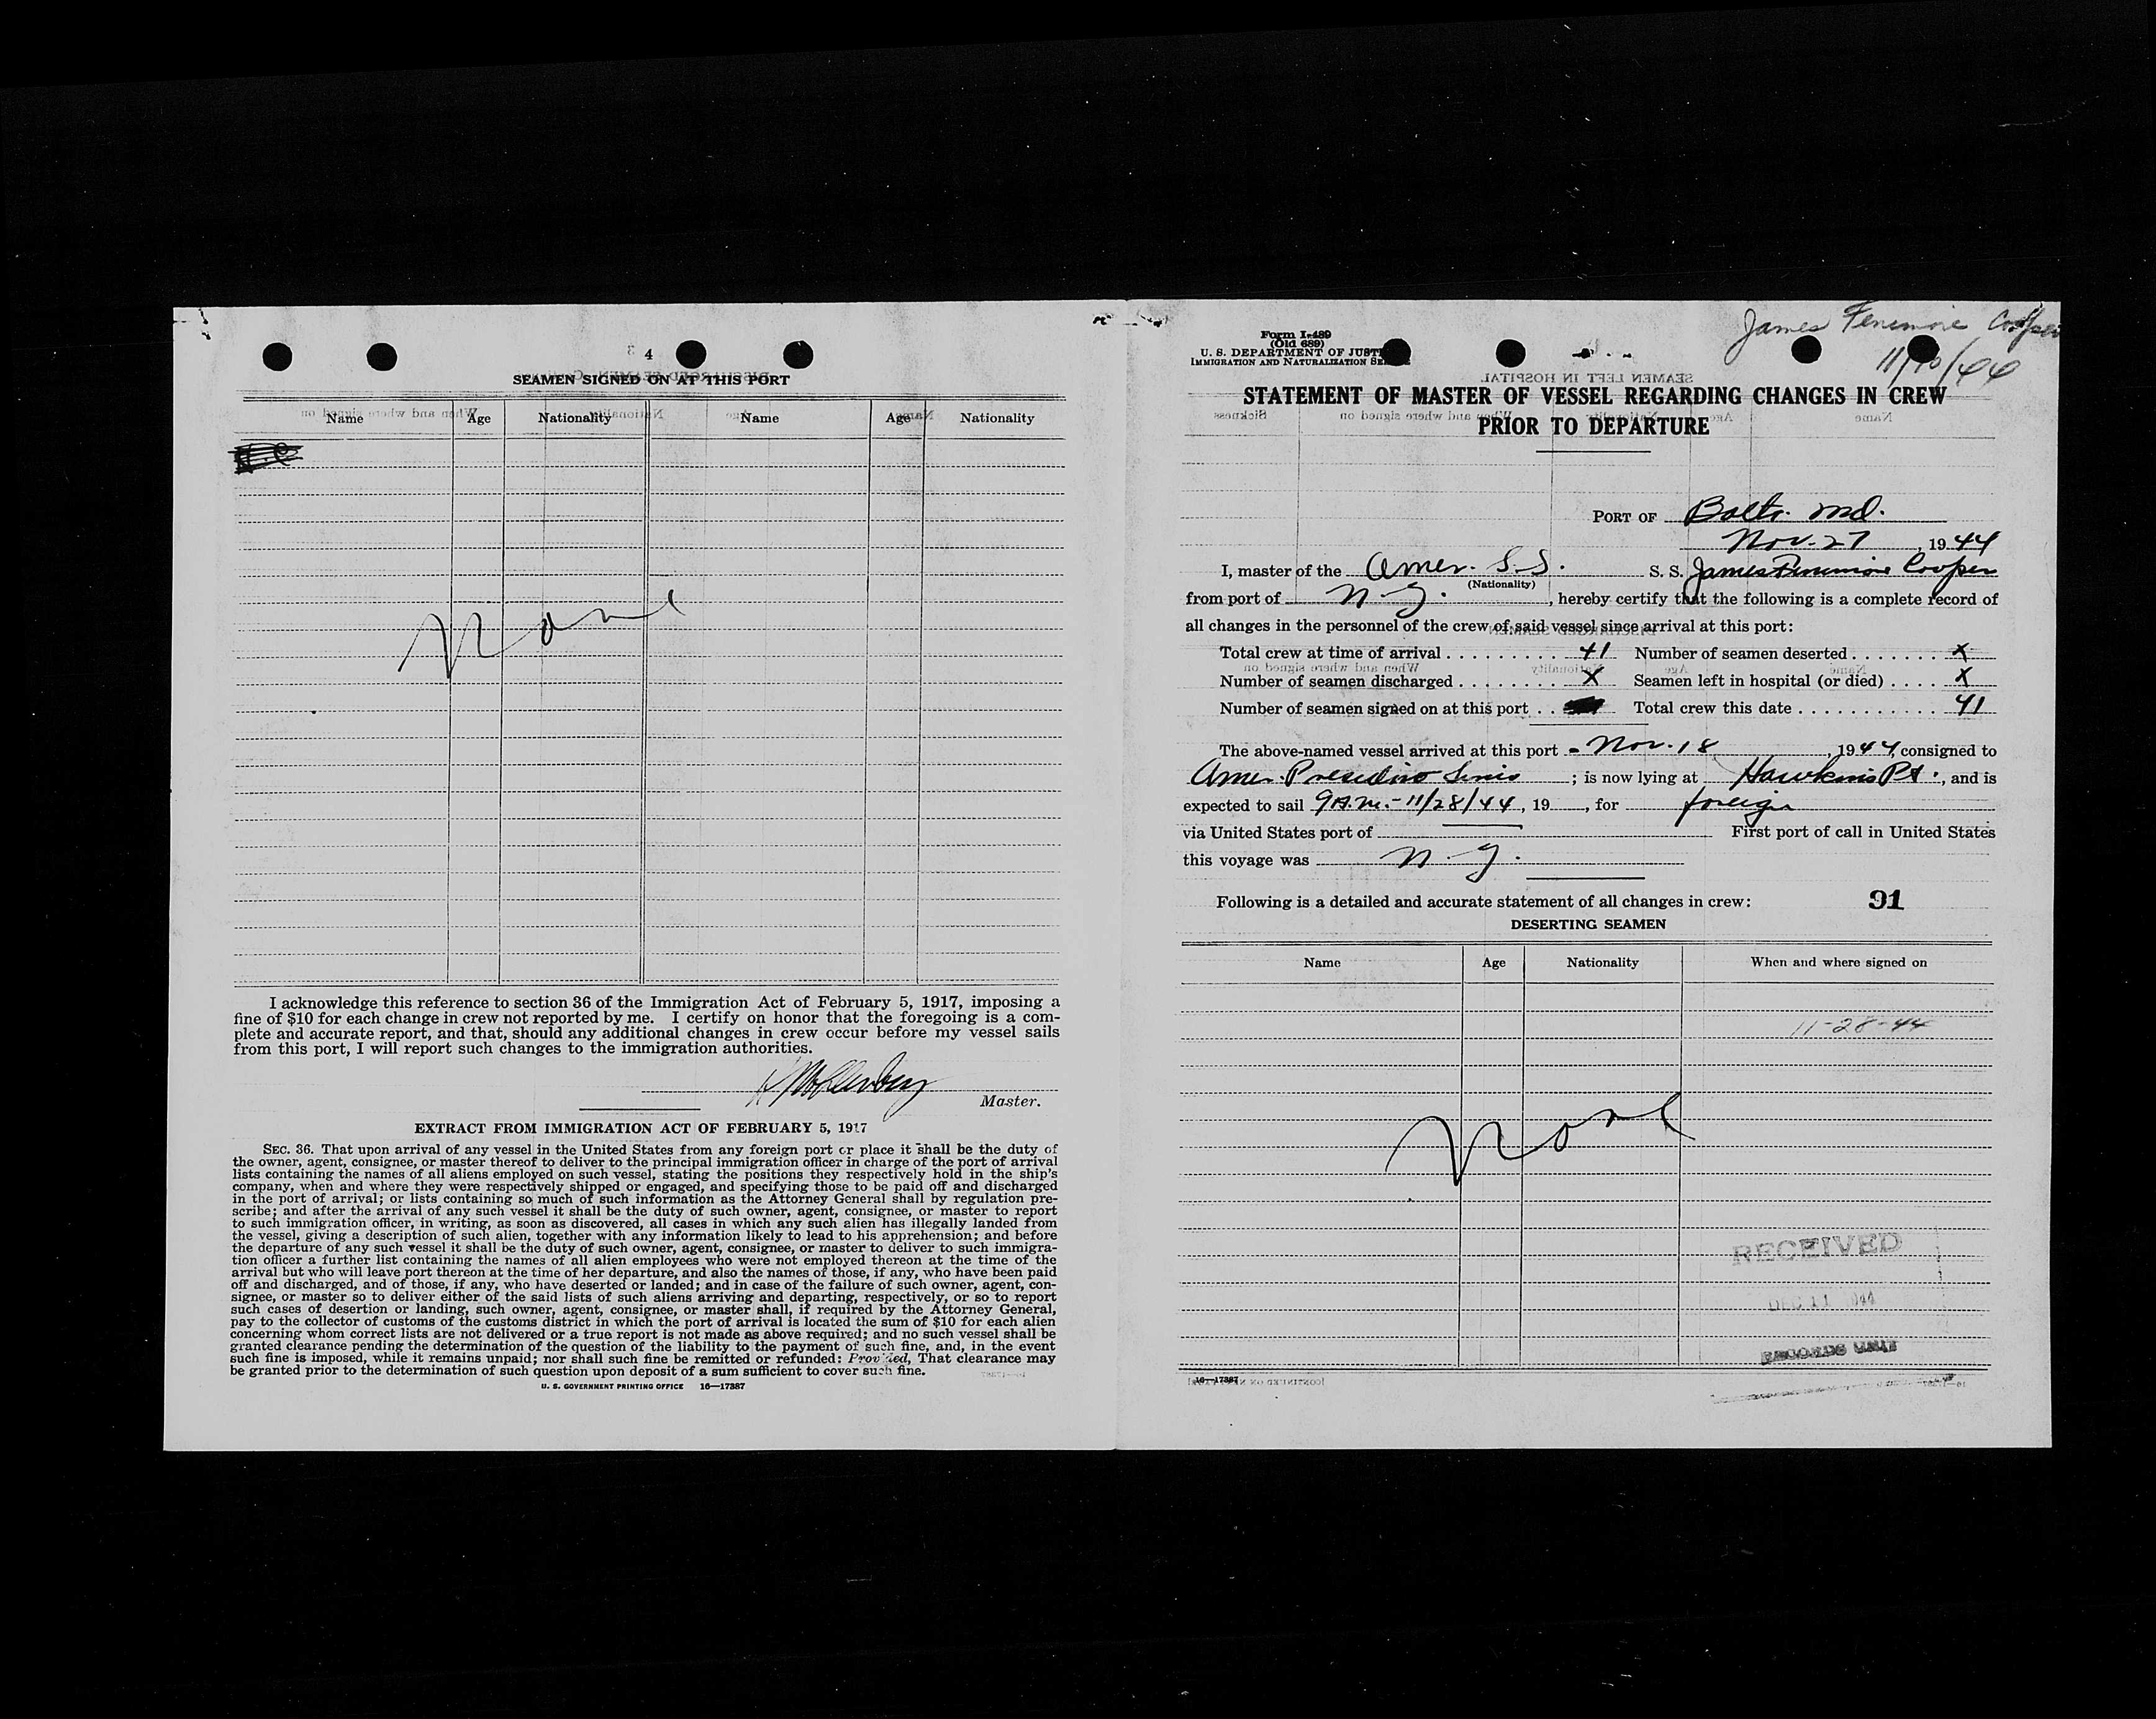 4
SEAMEN SIGNED ON AT THIS PORT
Name Age Nationality Name Age Nationality
None
I acknowledge this reference to section 36 of the Immigration Act of February 5, 1917, imposing a
fine of $10 for each change in crew not reported by me. I certify on honor that the foregoing is a com-
plete and accurate report, and that, should any additional changes in crew occur before my vessel sails
from this port, I will report such changes to the immigration authorities.
Master.
EXTRACT FROM IMMIGRATION ACT OF FEBRUARY 5, 1917
SEC. 36. That upon arrival of any vessel in the United States from any foreign port or place it shall be the duty of
the owner, agent, consignee, or master thereof to deliver to the principal immigration officer in charge of the port of arrival
lists containing the names of all aliens employed on such vessel, stating the positions they respectively hold in the ship's
company, when and where they were respectively shipped or engaged, and specifying those to be paid off and discharged
in the port of arrival; or lists containing so much of such information as the Attorney General shall by regulation pre-
scribe; and after the arrival of any such vessel it shall be the duty of such owner, agent, consignee, or master to report
to such immigration officer, in writing, as soon as discovered, all cases in which any such alien has illegally landed from
the vessel, giving a description of such alien, together with any information likely to lead to his apprehension; and before
the departure of any such vessel it shall be the duty of such owner, agent, consignee, or master to deliver to such immigra-
tion officer a further list containing the names of all alien employees who were not employed thereon at the time of the
arrival but who will leave port thereon at the time of her departure, and also the names of those, if any, who have been paid
off and discharged, and of those, if any, who have deserted or landed; and in case of the failure of such owner, agent, con-
signee, or master so to deliver either of the said lists of such aliens arriving and departing, respectively, or so to report
such cases of desertion or landing, such owner, agent, consignee, or master shall, if required by the Attorney General,
pay to the collector of customs of the customs district in which the port of arrival is located the sum of $10 for each alien
concerning whom correct lists are not delivered or a true report is not made as above required; and no such vessel shall be
granted clearance pending the determination of the question of the liability to the payment of such fine, and, in the event
such fine is imposed, while it remains unpaid; nor shall such fine be remitted or refunded: Provided, That clearance may
be granted prior to the determination of such question upon deposit of a sum sufficient to cover such fine.
U. S. GOVERNMENT PRINTING OFFICE 16—17387
James Fenimore Cooper
11/10/44
Form I-489
(Old 689)
U. S. DEPARTMENT OF JUST
IMMIGRATION AND NATURALIZATION SE
STATEMENT OF MASTER OF VESSEL REGARDING CHANGES IN CREW
PRIOR TO DEPARTURE
PORT OF Balto. Md.
Nov. 27, 1944
I, master of the Amer. S.S. S. S. James Fenimore Cooper
(Nationality)
from port of N.Y., hereby certify that the following is a complete record of
all changes in the personnel of the crew of said vessel since arrival at this port:
Total crew at time of arrival 41 Number of seamen deserted X
Number of seamen discharged X Seamen left in hospital (or died) X
Number of seamen signed on at this port Total crew this date 41
The above-named vessel arrived at this port - Nov. 18, 1944, consigned to
Amer. ; is now lying at Hawkins Pt., and is
expected to sail 9 A.M. - 11/28/44, 19 , for foreign
via United States port of First port of call in United States
this voyage was N.Y.
Following is a detailed and accurate statement of all changes in crew: 91
DESERTING SEAMEN
Name Age Nationality When and where signed on
11-28-44
None
RECEIVED
DEC 11 1944
RECORDS UNIT
16—17387